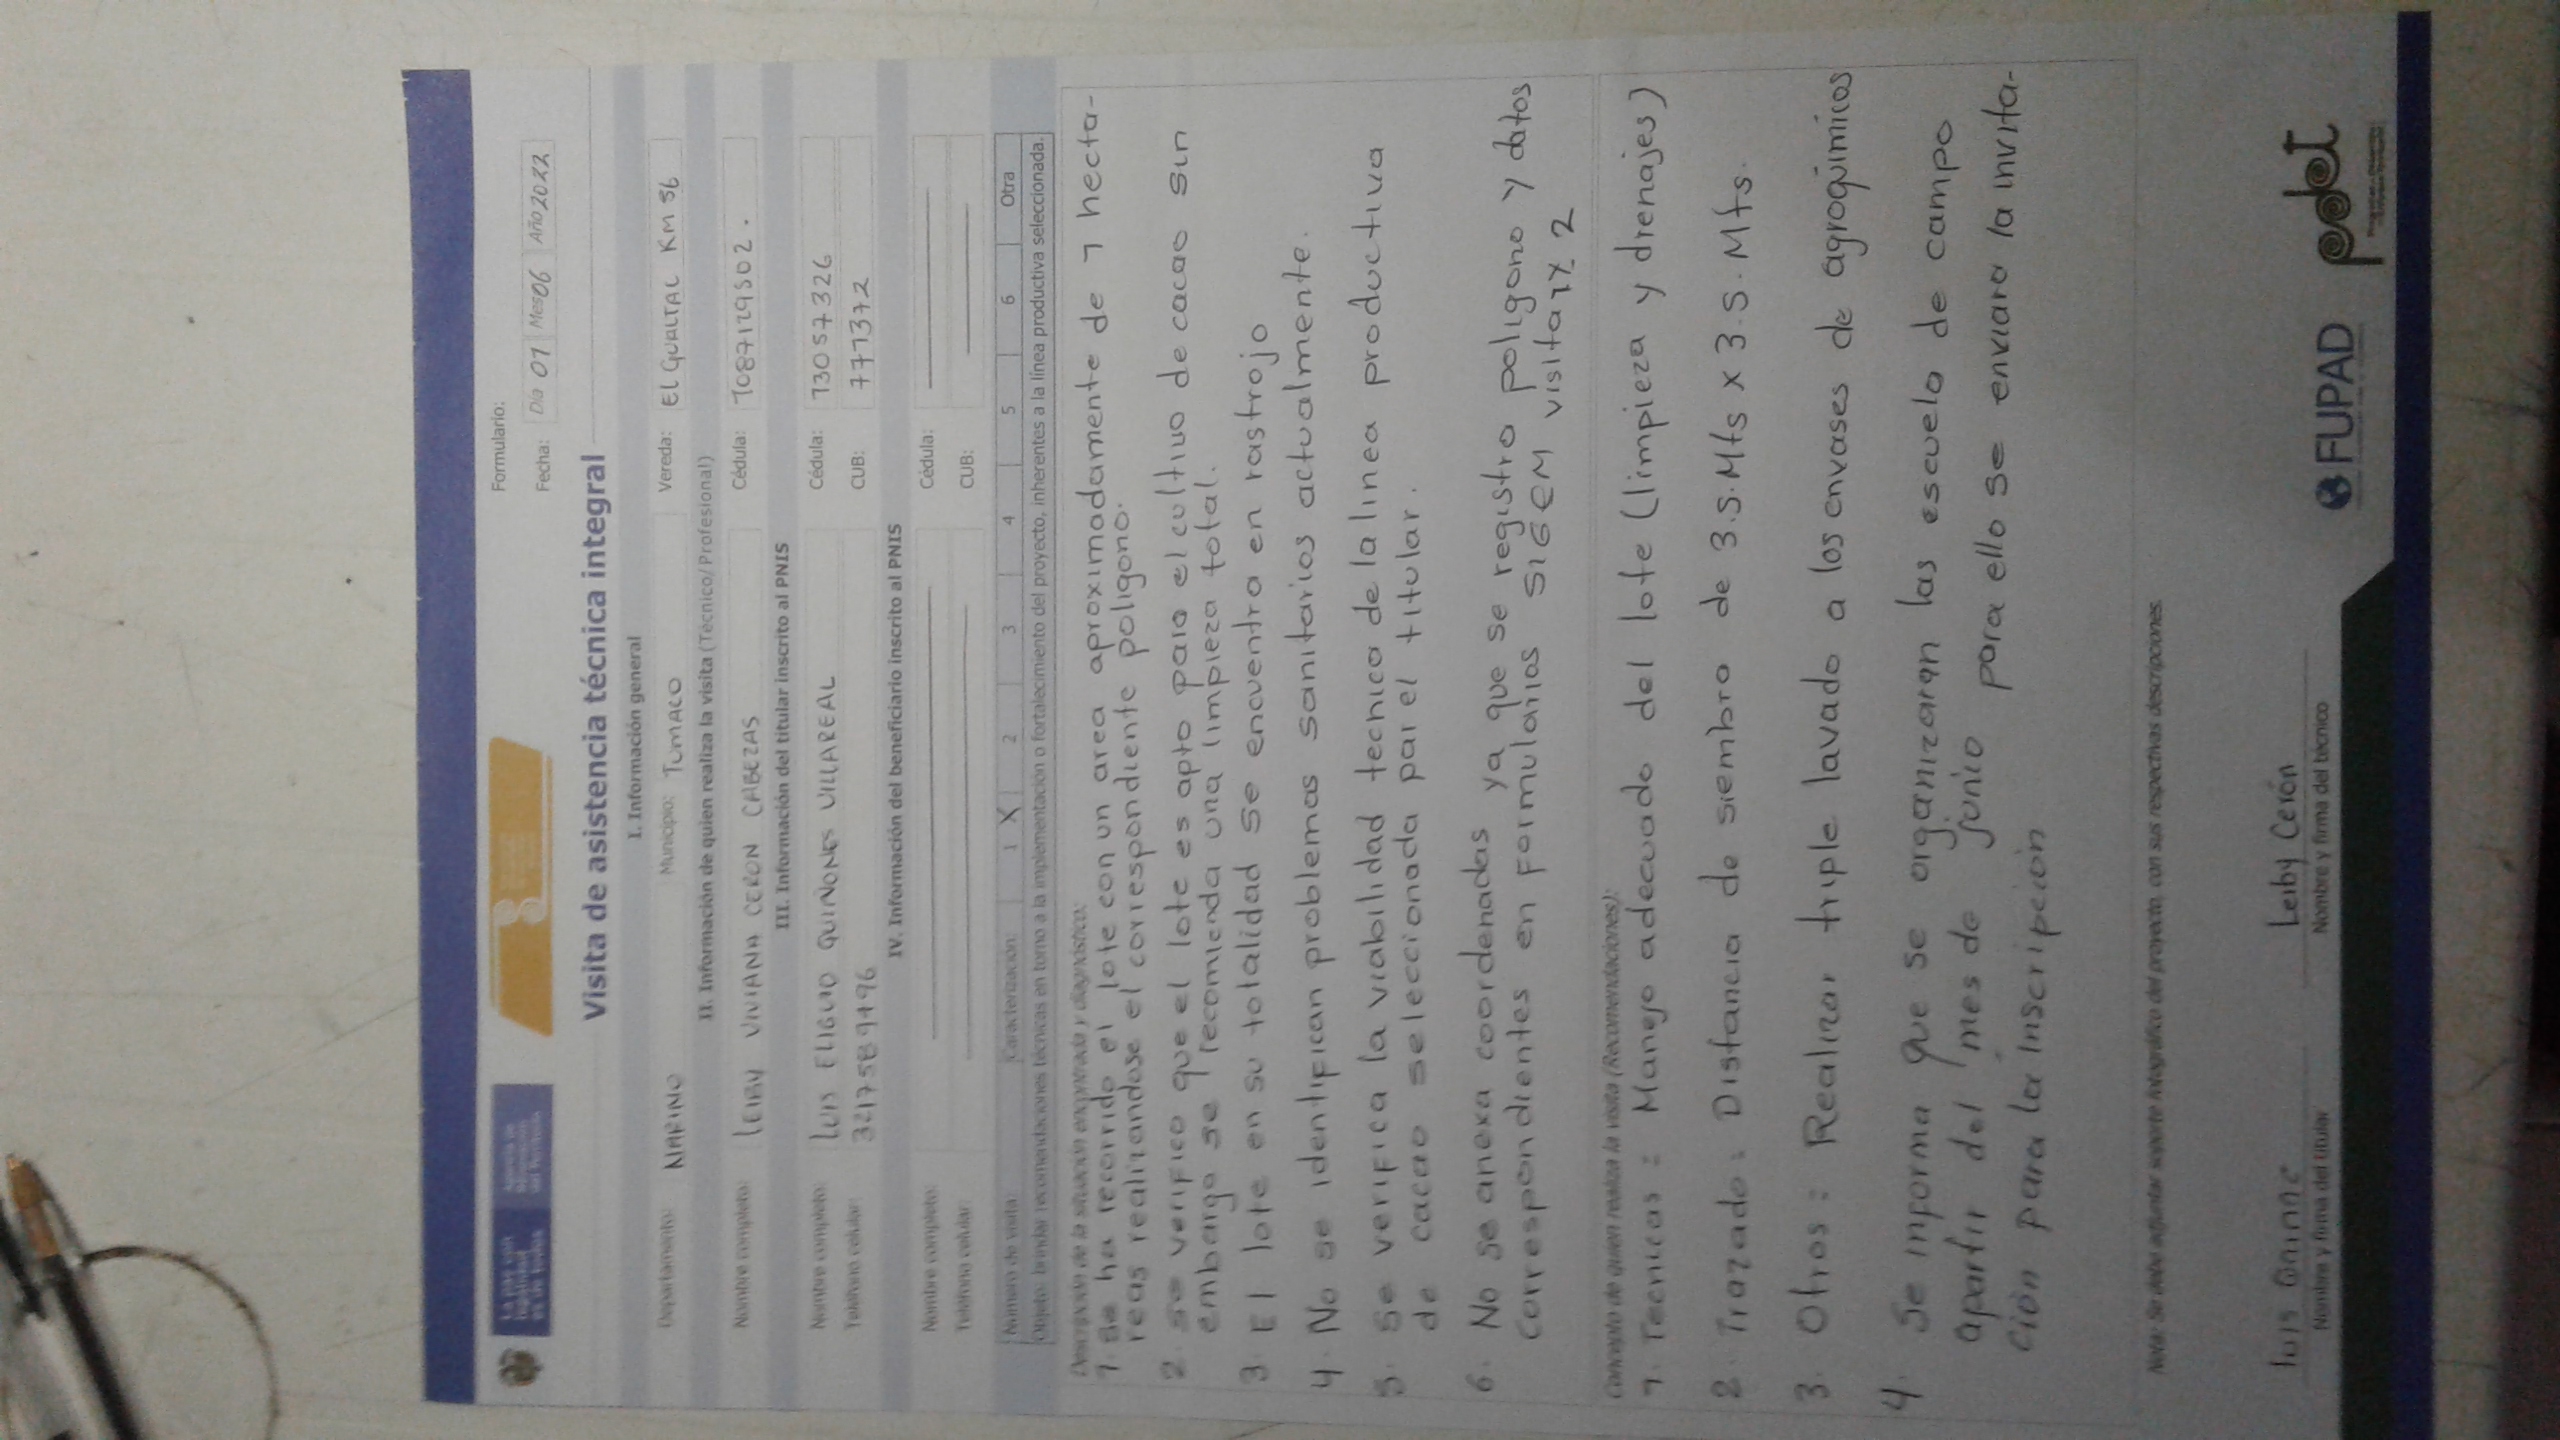 Formulario:
Fecha: Día 01 Mes 06 Año 2022
Visita de asistencia técnica integral
I. Información general
Departamento: NARIÑO Municipio: TUMACO Vereda: El GUALTAL KM 56
II. Información de quien realiza la visita (Técnico/ Profesional)
Nombre completo: LEIBY VIVIANA CERON CABEZAS Cédula: 1087129502.
III. Información del titular inscrito al PNIS
Nombre completo: LUIS ELIGIO QUIÑONES VILLAREAL Cédula: 13057326
Teléfono celular: 3217589196 CUB: 771372
IV. Información del beneficiario inscrito al PNIS
Nombre completo: Cédula:
Teléfono celular: CUB:
Número de visita: Caracterización: 1 X 2 3 4 5 6 Otra
Objeto: brindar recomendaciones técnicas en torno a la implementación o fortalecimiento del proyecto, inherentes a la línea productiva seleccionada.
Descripción de la situación encontrada y diagnóstico:
1. Se ha recorrido el lote con un area aproximadamente de 1 hecta-
reas realizandose el correspondiente poligono.
2. se verifico que el lote es apto para el cultivo de cacao sin
embargo se recomienda una limpieza total.
3 El lote en su totalidad se encuentra en rastrojo
4. No se identifican problemas sanitarios actualmente.
5. Se verifica la viabilidad tecnica de la linea productiva
de cacao seleccionada por el titular.
6. No se anexa coordenadas ya que se registro poligono y datos
correspondientes en formularios SIGEM visita 1 x 2
Concepto de quien realiza la visita (Recomendaciones):
1. Tecnicas: Manejo adecuado del lote (limpieza y drenajes)
2. Trazado: Distancia de siembra de 3.5.Mts x 3.5.Mts.
3. Otros: Realizar triple lavado a los envases de agroquimicos
4. Se informa que se organizaran las escuela de campo
apartir del mes de junio para ello se enviara la invita-
ción para la inscripción
Nota: Se debe adjuntar soporte fotográfico del proyecto, con sus respectivas descripciones.
Luis Quinne Leiby Cerón
Nombre y firma del titular Nombre y firma del técnico
FUPAD pdet